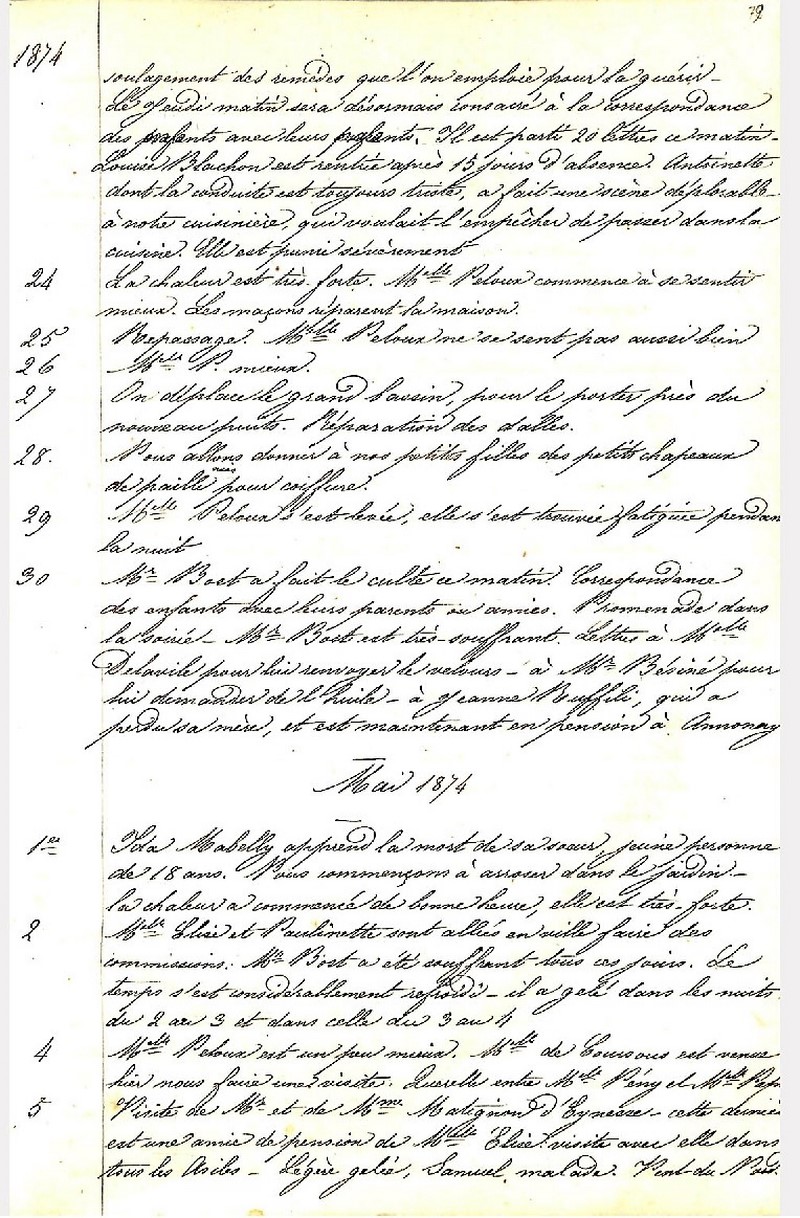 79
1874
soulagement des remèdes que l'on emploie pour la guérir -
Le Jeudi matin sera désormais consacré à la correspondance
des enfants avec leurs parents. Il est parti 20 lettres ce matin -
Louise Blachon est rentrée après 15 jours d'absence. Antoinette
dont la conduite est toujours triste, a fait une scène déplorable
à notre cuisinière, qui voulait l'empêcher de passer dans la
cuisine. Elle est punie sévèrement
24 La chaleur est très forte. Melle Peloux commence à se sentir
mieux. Les maçons réparent la maison.
25 Repassage. Melle Peloux ne se sent pas aussi bien
26 Melle P. mieux.
27 On déplace le grand bassin, pour le porter près du
nouveau puits. Réparation des dalles.
28. Nous allons donner à nos petites filles des petits chapeaux
de paille pour coiffure.
29 Melle Peloux s'est levée, elle s'est trouvée fatiguée pendan
la nuit
30 Mr Bost a fait le culte ce matin. Correspondance
des enfants avec leurs parents ou amies. Promenade dans
la soirée - Mr Bost est très-souffrant. Lettres à Melle
Delavile pour lui renvoyer le velours - à Mr Bésiné pour
lui demander de l'huile - à Jeanne Ruffili, qui a
perdu sa mère, et est maintenant en pension à Annonay
Mai 1874
1er Ida Mabelly apprend la mort de sa soeur, jeune personne
de 18 ans. Nous commençons à arroser dans le jardin -
la chaleur a commencé de bonne heure, elle est très-forte.
2 Melle Elise et Paulinette sont allées en ville faire des
commissions. Mr Bost a été souffrant tous ces jours. Le
temps s'est considérablement refroidi - il a gelé dans les nuits
du 2 au 3 et dans celle du 3 au 4
4 Melle Peloux est un peu mieux. Melle de Coursous est venue
hier nous faire une visite. Querelle entre Melle Pény et Melle
5 Visite de Mr et de Mme Matignon d'Eynesse - cette derniè
est une amie de pension de Melle Elise. visite avec elle dans
tous les Asiles - Légère gelée, Samuel malade. Vent du Nord.